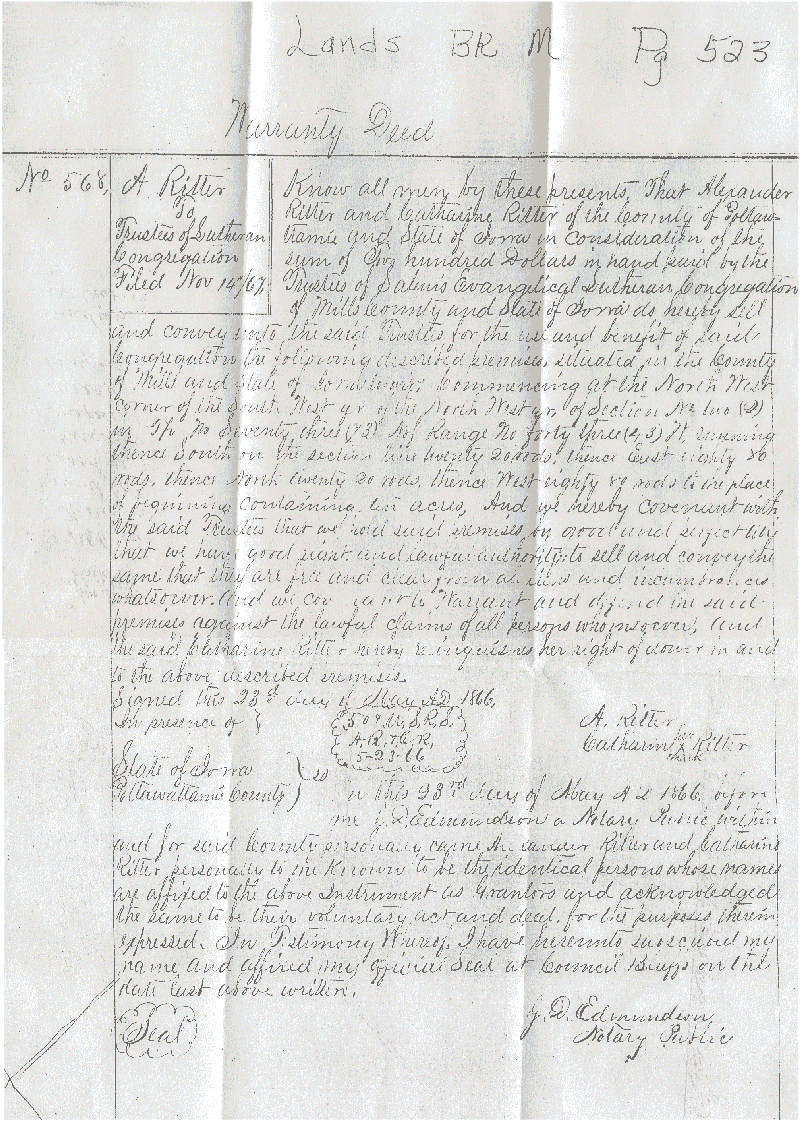 Lands BK M Pg 523
Warranty Deed
No 568,
A. Ritter
To
Trustees of Lutheran
Congregation
Filed Nov 14th/67
Know all men by these presents, That Alexander
Ritter and Catharine Ritter of the County of Pottaw-
tamie and State of Iowa in consideration of the
sum of One hundred Dollars in hand paid by the
Trustees of Salems Evangelical Lutheran Congregation
of Mills County and State of Iowa do hereby sell
and convey unto the said Trustees for the use and benefit of said
Congregation the following described premises, situated in the County
of Mills and State of Iowa towit; Commencing at the North West
corner of the South West qr of the North West qr, of Section No two (2)
in Tp No Seventy three (73) N of Range No forty three (43) W, running
thence South on the section line twenty 20 rods, thence East eighty 80
rods, thence North twenty 20 rods, thence West eighty 80 rods to the place
of beginning containing ten acres, And we hereby covenant with
the said Trustees that we hold said premises by good and perfect title
that we have good right and lawful authority to sell and convey the
same that they are free and clear from all liens and incumbrances
whatsoever. And we covenant to Warrant and defend the said
premises against the lawful claims of all persons whomsoever, And
the said Catharine Ritter hereby relinquishes her right of dower in and
to the above described premises.
Signed this 23d day of May A.D. 1866,
In presence of
50 c U.S.R.S.
A.R. & C.R.
5-23-66
A. Ritter,
Catharine her x mark Ritter
State of Iowa
Pottawattamie County ) ss
On this 23rd day of May A.D 1866, before
me J.D Edmundson a Notary Public within
and for said County personally came Alexander Ritter and Catharine
Ritter personally to me known to be the identical persons whose names
are affixed to the above Instrument as Grantors and acknowledged
the same to be their voluntary act and deed, for the purposes therein
expressed. In Testimony Whereof, I have hereunto subscribed my
name and affixed my official Seal at Council Bluffs on the
date last above written.
Seal
J. D. Edmundson,
Notary Public